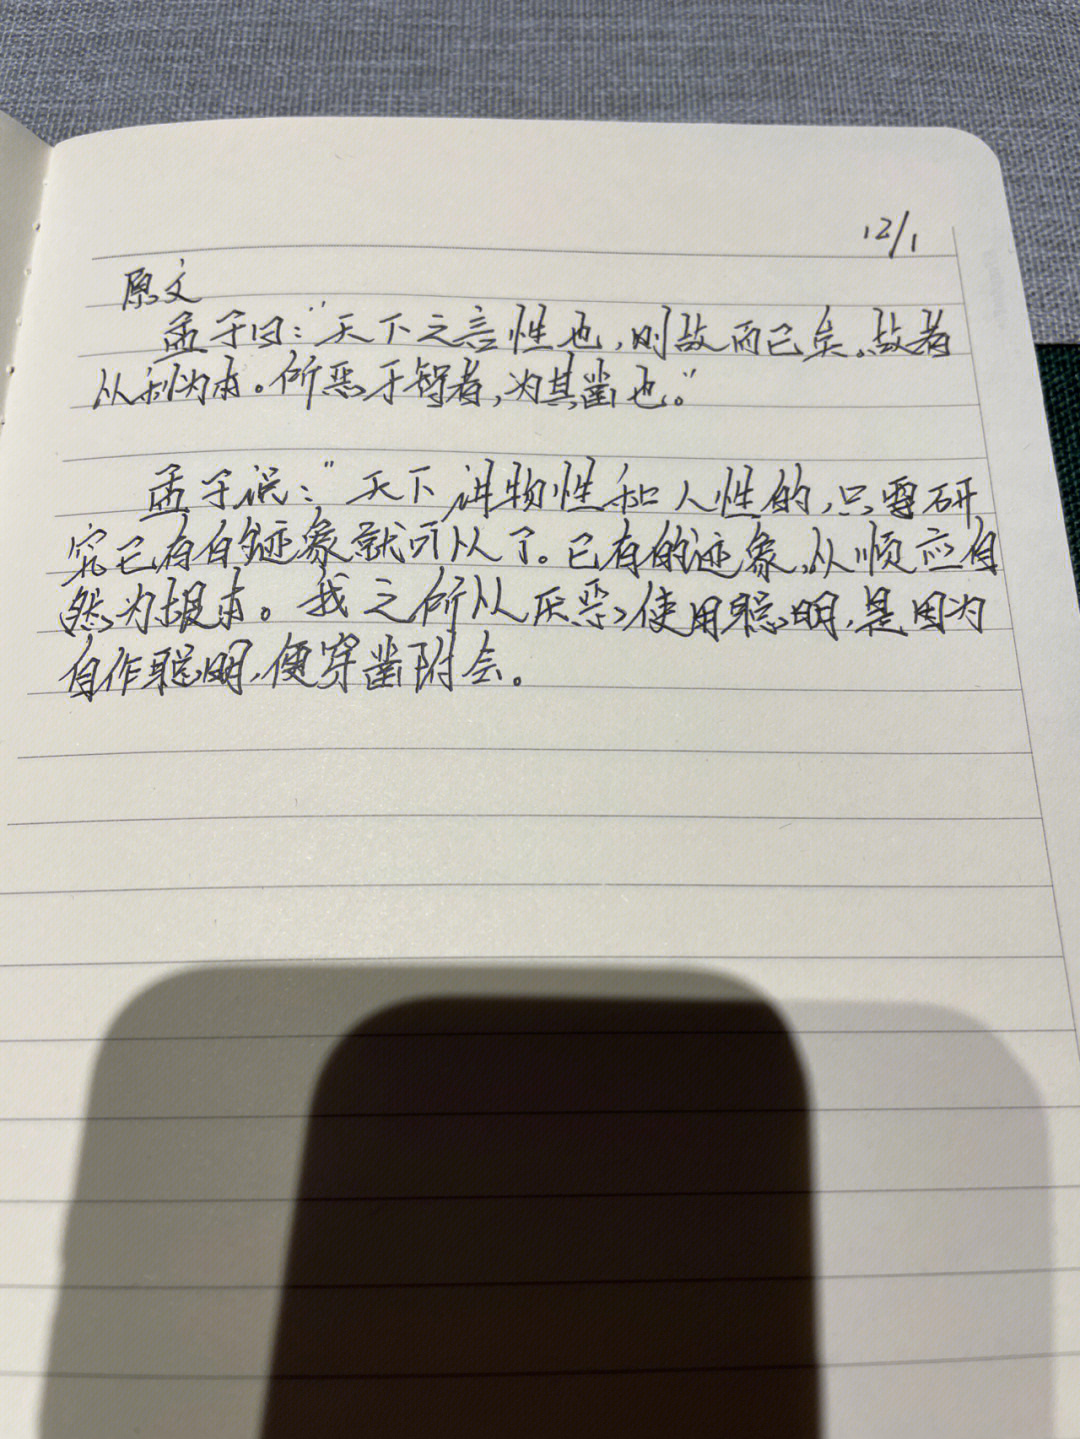 12/1
原文
孟子曰：“天下之言性也，则故而已矣。故者
以利为本。所恶于智者，为其凿也。”
孟子说：“天下讲物性和人性的，只需研
究已有的迹象就可以了。已有的迹象，以顺应自
然为根本。我之所以厌恶使用聪明，是因为
自作聪明，便穿凿附会。